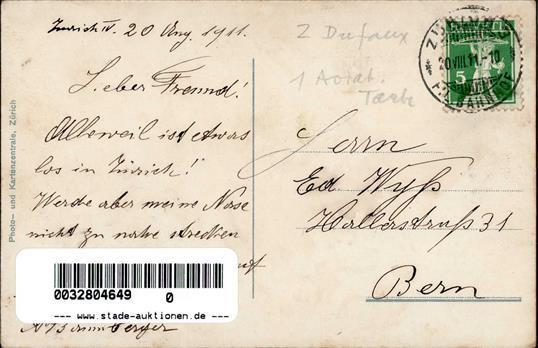 Zürich IV. 20 Aug. 1911.
Lieber Freund!
Alleweil ist etwas
los in Zürich!
Werde aber meine Nase
nicht zu nahe strecken
2 Dufaux
1 Aviat.
Taube
ZÜRICH
20 VIII 11 - 10
BAHNHOF
HELVETIA
5
Herrn
Ed. Wyß
Hallerstraß 31
Bern
Photo- und Kartenzentrale, Zürich
0032804649 0
--- www.stade-auktionen.de ---